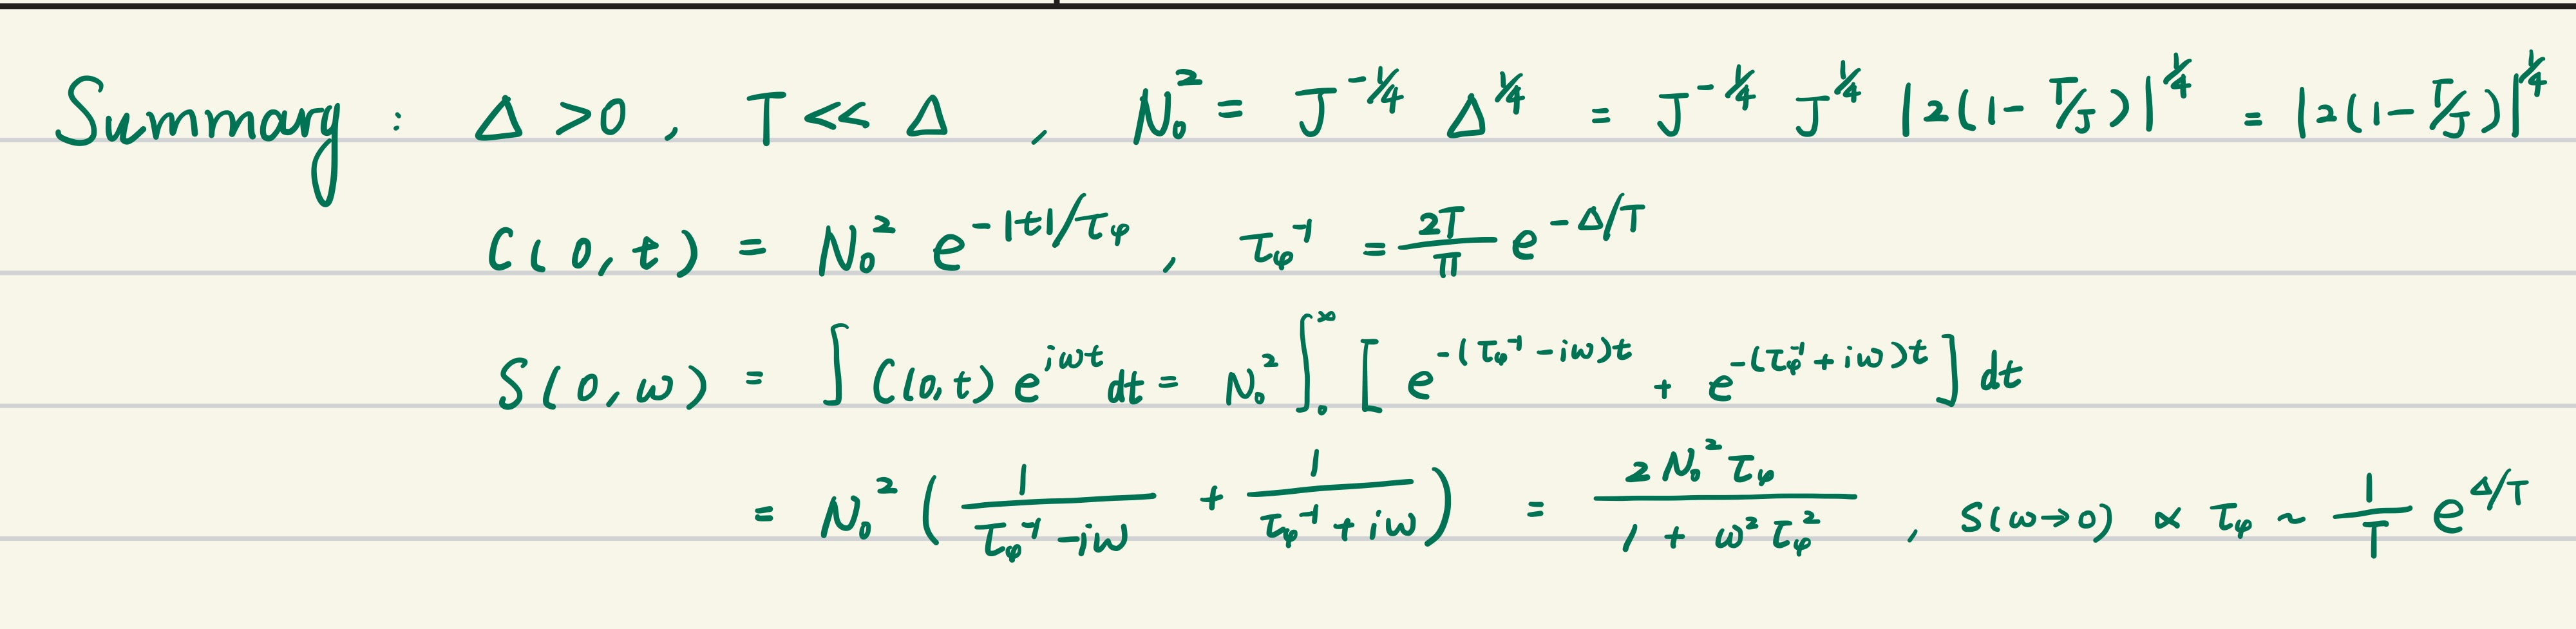 Summary : Δ > 0 , T << Δ , N₀² = J^{-1/4} Δ^{1/4} = J^{-1/4} J^{1/4} |2(1 - T/J)|^{1/4} = |2(1 - T/J)|^{1/4}
C(0, t) = N₀² e^{-|t|/τ_φ} , τ_φ^{-1} = \frac{2T}{π} e^{-Δ/T}
S(0, ω) = ∫ C(0,t) e^{iωt} dt = N₀² ∫_0^∞ [ e^{-(τ_φ^{-1} - iω)t} + e^{-(τ_φ^{-1} + iω)t} ] dt
= N₀² ( \frac{1}{τ_φ^{-1} - iω} + \frac{1}{τ_φ^{-1} + iω} ) = \frac{2 N₀² τ_φ}{1 + ω² τ_φ²} , S(ω→0) ∝ τ_φ ~ \frac{1}{T} e^{Δ/T}